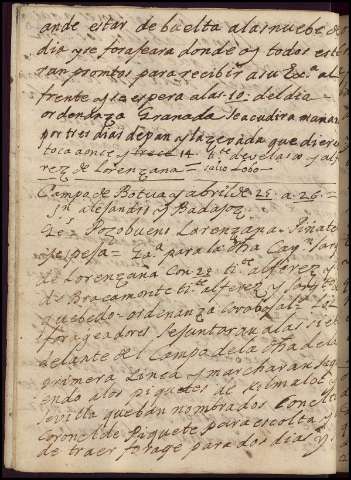 ande estar de buelta a las nuebe de
dia y se forajeara donde oy todos este
ran promtos para recibir a su Exª al
frente q se espera a las 10: del dia =
ordenanza Granada se acudira mañana
por tres dias de pan y la zevada que diere
toca a onze y trece 14 ti.te
rez de Lorenzana = salio Lobo =
Campo de Botua y abril de 25 a 26 =
Sn alejandro y Badajoz
Pozobueno Lorenzana Piñate
para la dha Cap.n
de Lorenzana Con 2º ti.te alferez y
de Bracamonte ti.te alferez y
quebedo = ordenanza
forageadores se juntaran a las siete
delante del Campo de la dha de la
primera Linea y marcharan sigui
endo a los piquetes de Kelmalok y
sevilla que ban nombrados Con el the
Coronel de Piquete para escolta y
de traer forage para dos dias y